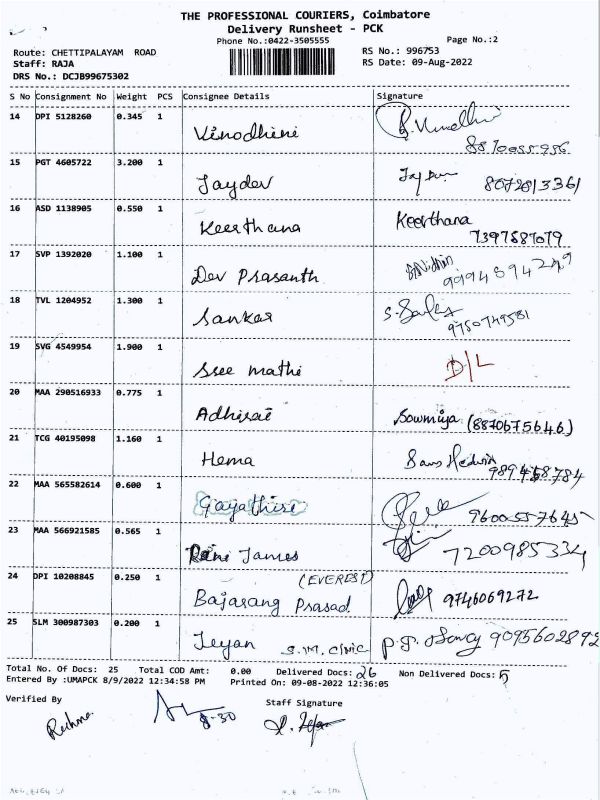 THE PROFESSIONAL COURIERS, Coimbatore
Delivery Runsheet - PCK
Phone No.:0422-3505555
Page No.:2
Route: CHETTIPALAYAM ROAD
RS No.: 996753
Staff: RAJA
RS Date: 09-Aug-2022
DRS No.: DCJB99675302
S No Consignment No Weight PCS Consignee Details Signature
14 DPI 5128260 0.345 1 Vinodhini
15 PGT 4605722 3.200 1 Jaydev 8072813361
16 ASD 1138905 0.550 1 Keerthana Keerthana
7397887079
17 SVP 1392020 1.100 1 Dev Prasanth
18 TVL 1204952 1.300 1 Sankar
9750749581
19 SVG 4549954 1.900 1 Sree mathi D/L
20 MAA 290516933 0.775 1 Adhirai Sowmiya (8870675646)
21 TCG 40195098 1.160 1 Hema
22 MAA 565582614 0.600 1 Gayathiri 9600557645
23 MAA 566921585 0.565 1 Rani James 7200985334
24 DPI 10208845 0.250 1 (EVEREST)
Bajarang Prasad 9746069272
25 SLM 300987303 0.200 1 Jeyan 9095602892
Total No. Of Docs: 25 Total COD Amt: 0.00 Delivered Docs: 26 Non Delivered Docs: 5
Entered By :UMAPCK 8/9/2022 12:34:58 PM Printed On: 09-08-2022 12:36:05
Verified By Staff Signature
Reshma
8-30